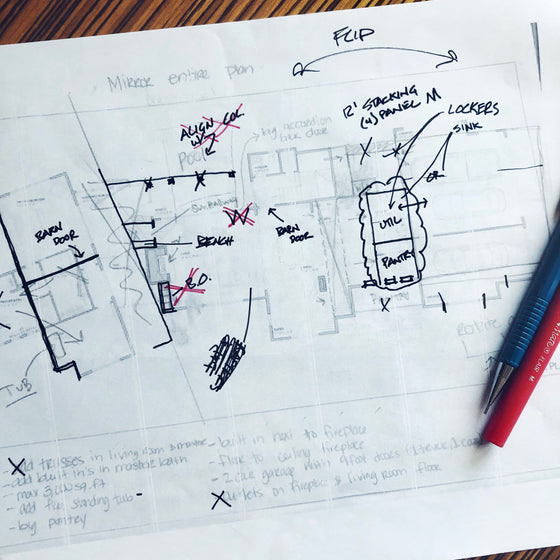 FLIP
Mirror entire plan
12' STACKING
(4) PANEL
LOCKERS
SINK
ALIGN COL.
W/
POOL
big accordion
back door
OR
UTIL
PANTRY
BARN
DOOR
BENCH
BARN
DOOR
B.D.
TUB
add trusses in living room &
- add built in's in master bath
- max 3,000 sq. ft
- add free standing tub -
- big pantry
- built in next to fireplace
- floor to ceiling fireplace
- 2 car garage with 9 foot doors (1 truck, 1 car)
outlets on fireplace & living room floor
FLAIR M